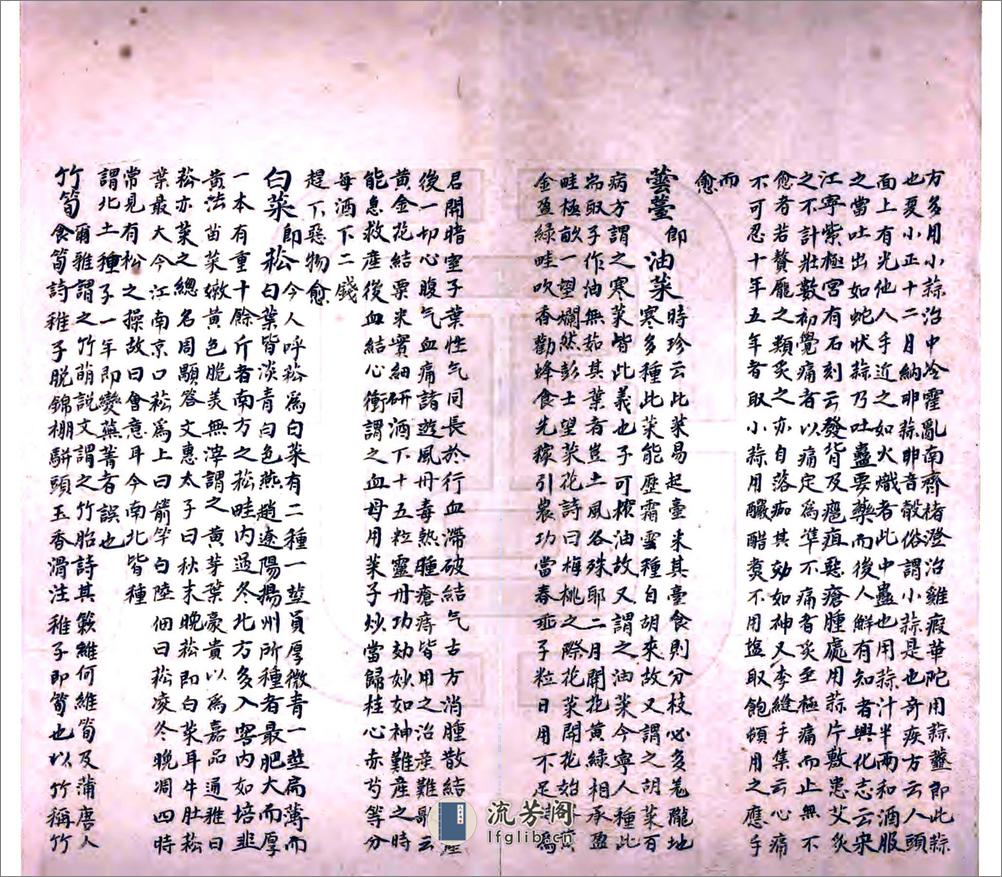 方多用小蒜治中冷霍亂南齊褚澄治雞瘕華陀用蒜虀即此蒜
也夏小正十二月納卵蒜卵音殻俗謂小蒜是也奇疾方云人頭
面上有光他人手近之如火熾者此中蠱也用蒜汁半兩和酒服
之當吐出如蛇狀蒜乃吐蠱要藥而後人鮮有知者興化志云宋
江寧紫極宮有石刻云發背及癰疽惡瘡腫處用蒜片敷患艾炙
之不計壯數初覺痛者以痛定為準不痛者炙至極痛而止無不
愈者若贅龐之類炙之亦自落痂其効如神又李絳手集云心痛
不可忍十年五年者取小蒜用釅醋煑不用盐取飽頓用之應手
而
愈
蕓薹即油菜時珍云此菜易起薹采其薹食則分枝必多羌隴地
寒多種此菜能歷霜雪種自胡來故又謂之胡菜百
病方謂之寒菜皆此義也子可櫂油故又謂之油菜今寧人種此
耑取子作油無茹其葉者豈土風各殊耶二月開花黃綠相承盈
畦極畝一望爛然彭士望菜花詩曰梅桃之際花菜開花始
金盈綠畦吹香勸蜂食先稼引農功當春亟子粒日用不足為
君開暗室子葉性气同長於行血滯破結气古方消腫散結產
後一切心腹气血痛諸遊風丹毒熱腫瘡痔皆用之治產難歌云
黃金花結粟米實細研酒下十五粒靈丹功効妙如神難產之時
能急救產後血結心衝謂之血母用菜子炒當歸桂心赤芍等分
每酒下二錢
趕下惡物愈
白菜即菘今人呼菘為白菜有二種一莖員厚微青一莖扁薄而
白葉皆淡青白色燕趙遼陽揚州所種者最肥大而厚
一本有重十餘斤者南方之菘畦內過冬北方多入窖內如培韭
黃法苗葉嫩黃色脆美無滓謂之黃芽葉豪貴以為嘉品通雅曰
菘亦菜之總名周顒答文惠太子曰秋末晚菘即白菜耳牛肚菘
葉最大今江南京口菘為上曰箭竿白陸佃曰菘凌冬晚凋四時
常見有松之操故曰會意耳今南北皆種
謂北土種子一年即變蕪菁者誤也
竹筍爾雅謂之竹萌說文謂之竹胎詩其簌維何維筍及蒲唐人
食筍詩稚子脫錦棚駢頭玉香滑注稚子即筍也以竹稱竹
流芳閣
lfglib.cn